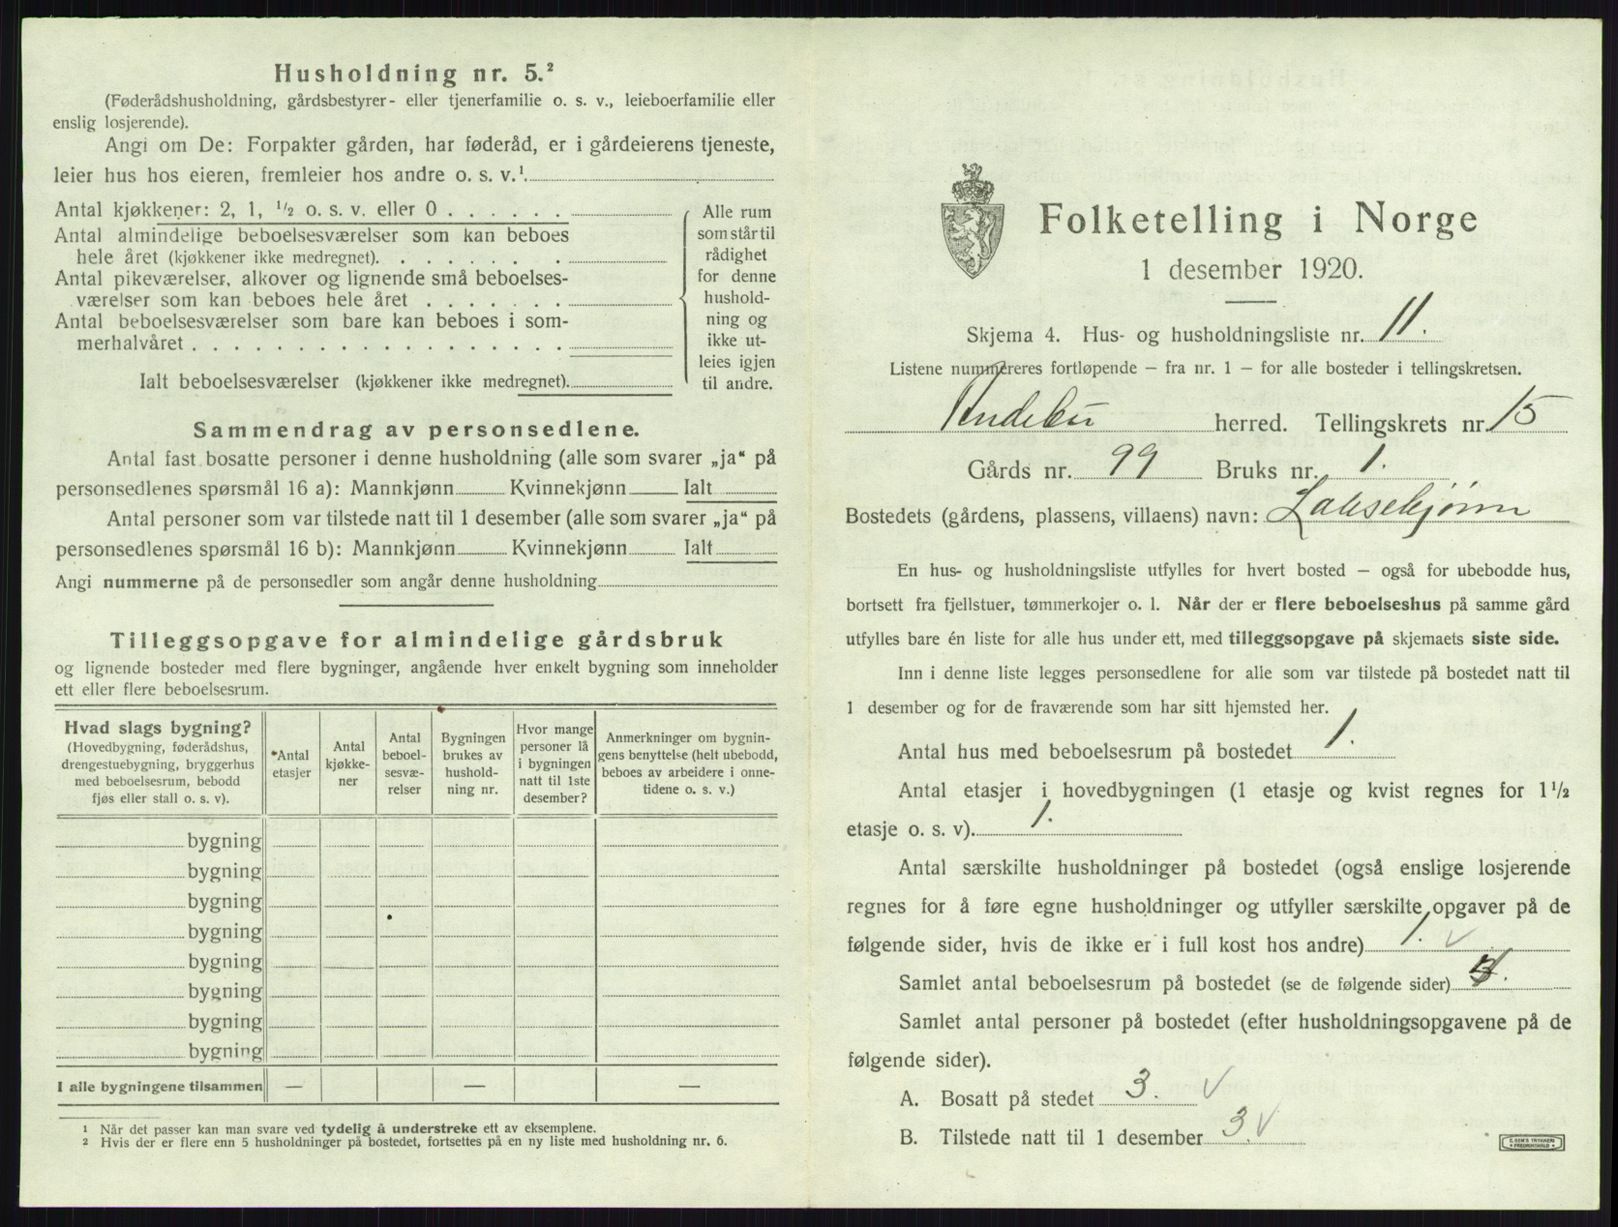 Husholdning nr. 5.²
(Føderådshusholdning, gårdsbestyrer- eller tjenerfamilie o. s. v., leieboerfamilie eller
enslig losjerende).
Angi om De: Forpakter gården, har føderåd, er i gårdeierens tjeneste,
leier hus hos eieren, fremleier hos andre o. s. v.¹
Antal kjøkkener: 2, 1, ½ o. s. v. eller 0
Antal almindelige beboelsesværelser som kan beboes
hele året (kjøkkener ikke medregnet)
Antal pikeværelser, alkover og lignende små beboelses-
værelser som kan beboes hele året
Antal beboelsesværelser som bare kan beboes i som-
merhalvåret
Ialt beboelsesværelser (kjøkkener ikke medregnet)
Alle rum
som står til
rådighet
for denne
hushold-
ning og
ikke ut-
leies igjen
til andre.
Sammendrag av personsedlene.
Antal fast bosatte personer i denne husholdning (alle som svarer „ja“ på
personsedlenes spørsmål 16 a): Mannkjønn Kvinnekjønn Ialt
Antal personer som var tilstede natt til 1 desember (alle som svarer „ja“ på
personsedlenes spørsmål 16 b): Mannkjønn Kvinnekjønn Ialt
Angi nummerne på de personsedler som angår denne husholdning
Tilleggsopgave for almindelige gårdsbruk
og lignende bosteder med flere bygninger, angående hver enkelt bygning som inneholder
ett eller flere beboelsesrum.
Hvad slags bygning?
(Hovedbygning, føderådshus,
drengestuebygning, bryggerhus
med beboelsesrum, bebodd
fjøs eller stall o. s. v).
Antal
etasjer
Antal
kjøkke-
ner
Antal
beboel-
sesvæ-
relser
Bygningen
brukes av
hushold-
ning nr.
Hvor mange
personer lå
i bygningen
natt til 1ste
desember?
Anmerkninger om bygnin-
gens benyttelse (helt ubebodd,
beboes av arbeidere i onne-
tidene o. s. v.)
bygning
bygning
bygning
bygning
bygning
bygning
bygning
bygning
I alle bygningene tilsammen — — —
¹ Når det passer kan man svare ved tydelig å understreke ett av eksemplene.
² Hvis der er flere enn 5 husholdninger på bostedet, fortsettes på en ny liste med husholdning nr. 6.
Folketelling i Norge
1 desember 1920.
Skjema 4. Hus- og husholdningsliste nr. 11.
Listene nummereres fortløpende — fra nr. 1 — for alle bosteder i tellingskretsen.
Andebu herred. Tellingskrets nr. 15
Gårds nr. 99 Bruks nr. 1.
Bostedets (gårdens, plassens, villaens) navn: Laksekjønn
En hus- og husholdningsliste utfylles for hvert bosted — også for ubebodde hus,
bortsett fra fjellstuer, tømmerkojer o. l. Når der er flere beboelseshus på samme gård
utfylles bare én liste for alle hus under ett, med tilleggsopgave på skjemaets siste side.
Inn i denne liste legges personsedlene for alle som var tilstede på bostedet natt til
1 desember og for de fraværende som har sitt hjemsted her.
Antal hus med beboelsesrum på bostedet 1.
Antal etasjer i hovedbygningen (1 etasje og kvist regnes for 1½
etasje o. s. v). 1.
Antal særskilte husholdninger på bostedet (også enslige losjerende
regnes for å føre egne husholdninger og utfyller særskilte opgaver på de
følgende sider, hvis de ikke er i full kost hos andre) 1. ✓
Samlet antal beboelsesrum på bostedet (se de følgende sider)
Samlet antal personer på bostedet (efter husholdningsopgavene på de
følgende sider).
A. Bosatt på stedet 3. ✓
B. Tilstede natt til 1 desember 3 ✓